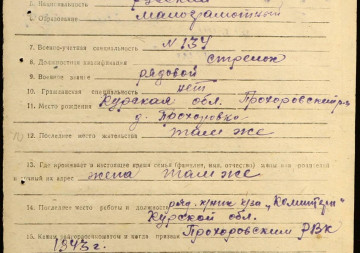 5. Национальность русский
6. Образование малограмотный
7. Военно-учетная специальность № 134
8. Должностная квалификация стрелок
9. Военное звание рядовой
10. Гражданская специальность нет
11. Место рождения Курская обл. Прохоровский р-н
д. Прохоровка
12. Последнее место жительства там же
13. Где проживает в настоящее время семья (фамилия, имя, отчество) жены или родителей
и точный их адрес жена там же
14. Последнее место работы и должность ряд. к-за „Коминтерн"
Курской обл.
15. Каким райвоенкоматом и когда призван Прохоровским РВК
1943 г.